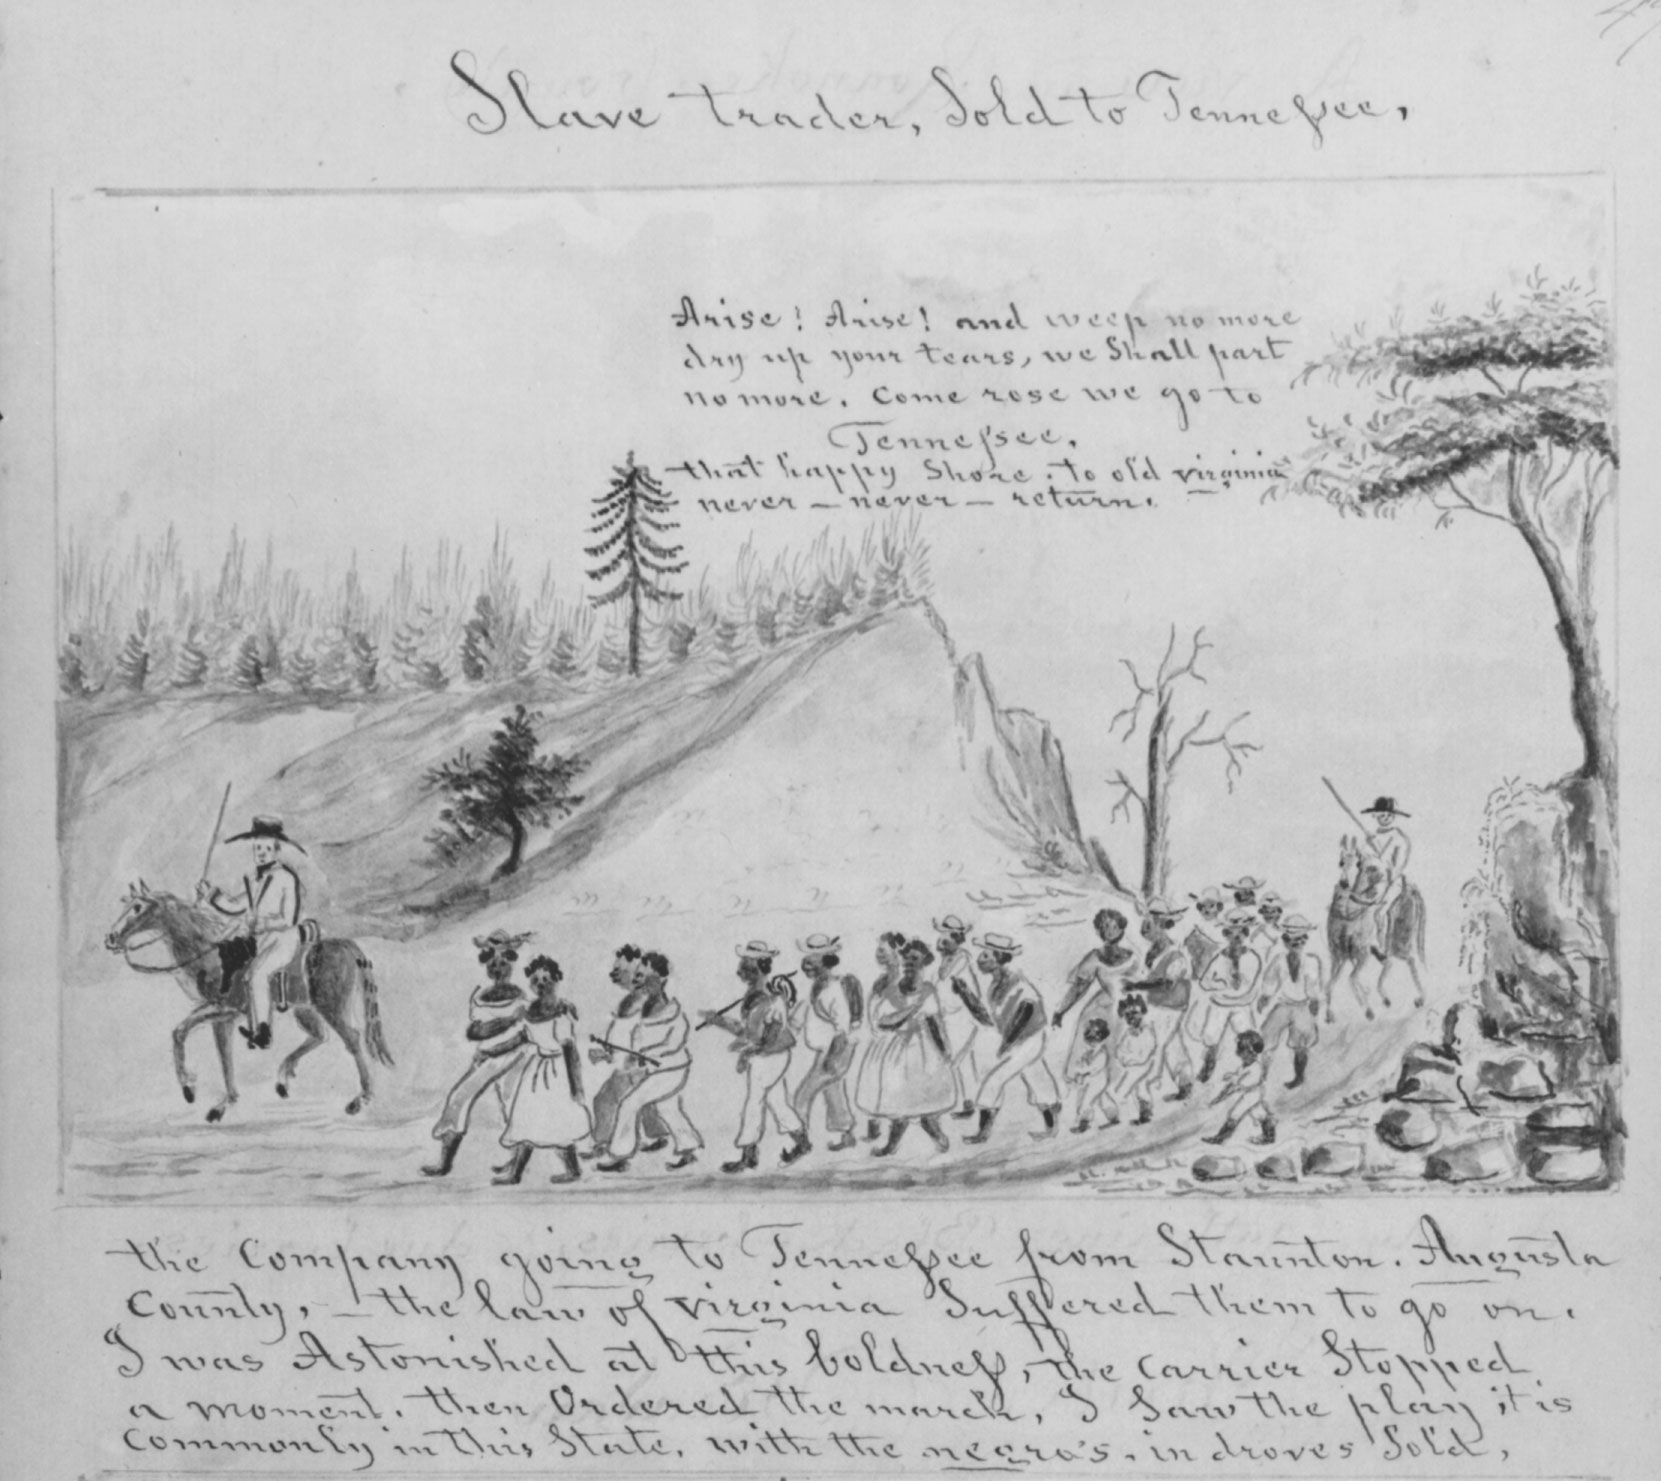 Slave trader, Sold to Tennessee,
Arise! Arise! and weep no more
dry up your tears, we Shall part
no more. Come rose we go to
Tennessee.
that happy Shore. to old virginia
never — never — return.
the Company going to Tennessee from Staunton. Augusta
County, — the law of virginia Suffered them to go on.
I was Astonished at this boldness, the carrier Stopped
a moment. then Ordered the march, I Saw the play it is
Commonly in this State, with the negro's in droves Sold,